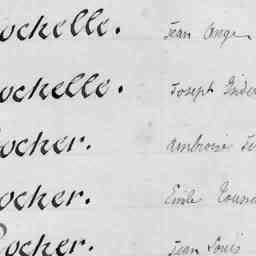 ockelle. Jean Ange
ockelle. Joseph
ocher. Ambroise
ocher. Emile
ocher. Jean Louis